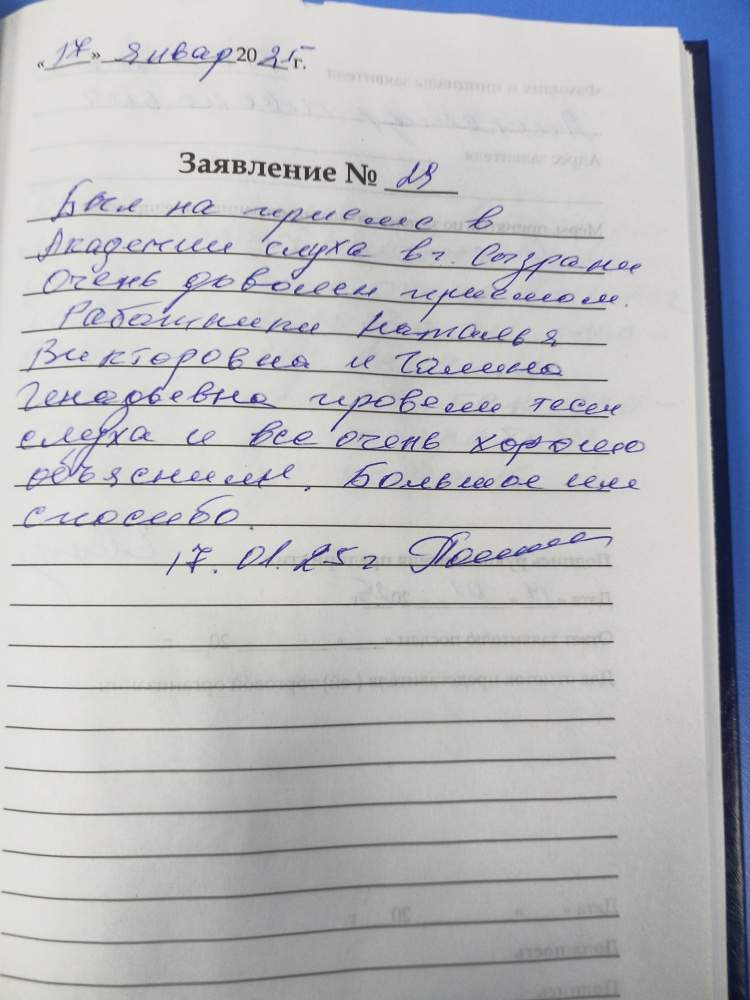 «17» январ 2025г.
Заявление № 29
Был на приеме в
Академии слуха в г. Сызрани
Очень доволен приемом.
Работники Наталья
Викторовна и Галина
Генадьевна провели тест
слуха и все очень хорошо
объяснили. Большое им
спосибо.
17.01.25 г